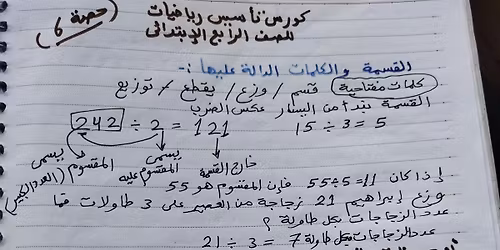 كورس تأسيس رياضيات
للصف الرابع الإبتدائى
حصة 6
القسمة والكلمات الدالة عليها :-
كلمات مفتاحية قسم / وزع / يقطع / توزيع
القسمة نبدأ من اليسار عكس الضرب
242 ÷ 2 = 121 15 ÷ 3 = 5
يسمى المقسوم (العدد الكبير) يسمى المقسوم عليه خارج القسمة
إذا كان 11 = 5 ÷ 55 فإن المقسوم هو 55
وزع إبراهيم 21 زجاجة من العصير على 3 طاولات فما
عدد الزجاجات بكل طاولة ؟
عدد الزجاجات بكل طاولة 7 = 3 ÷ 21